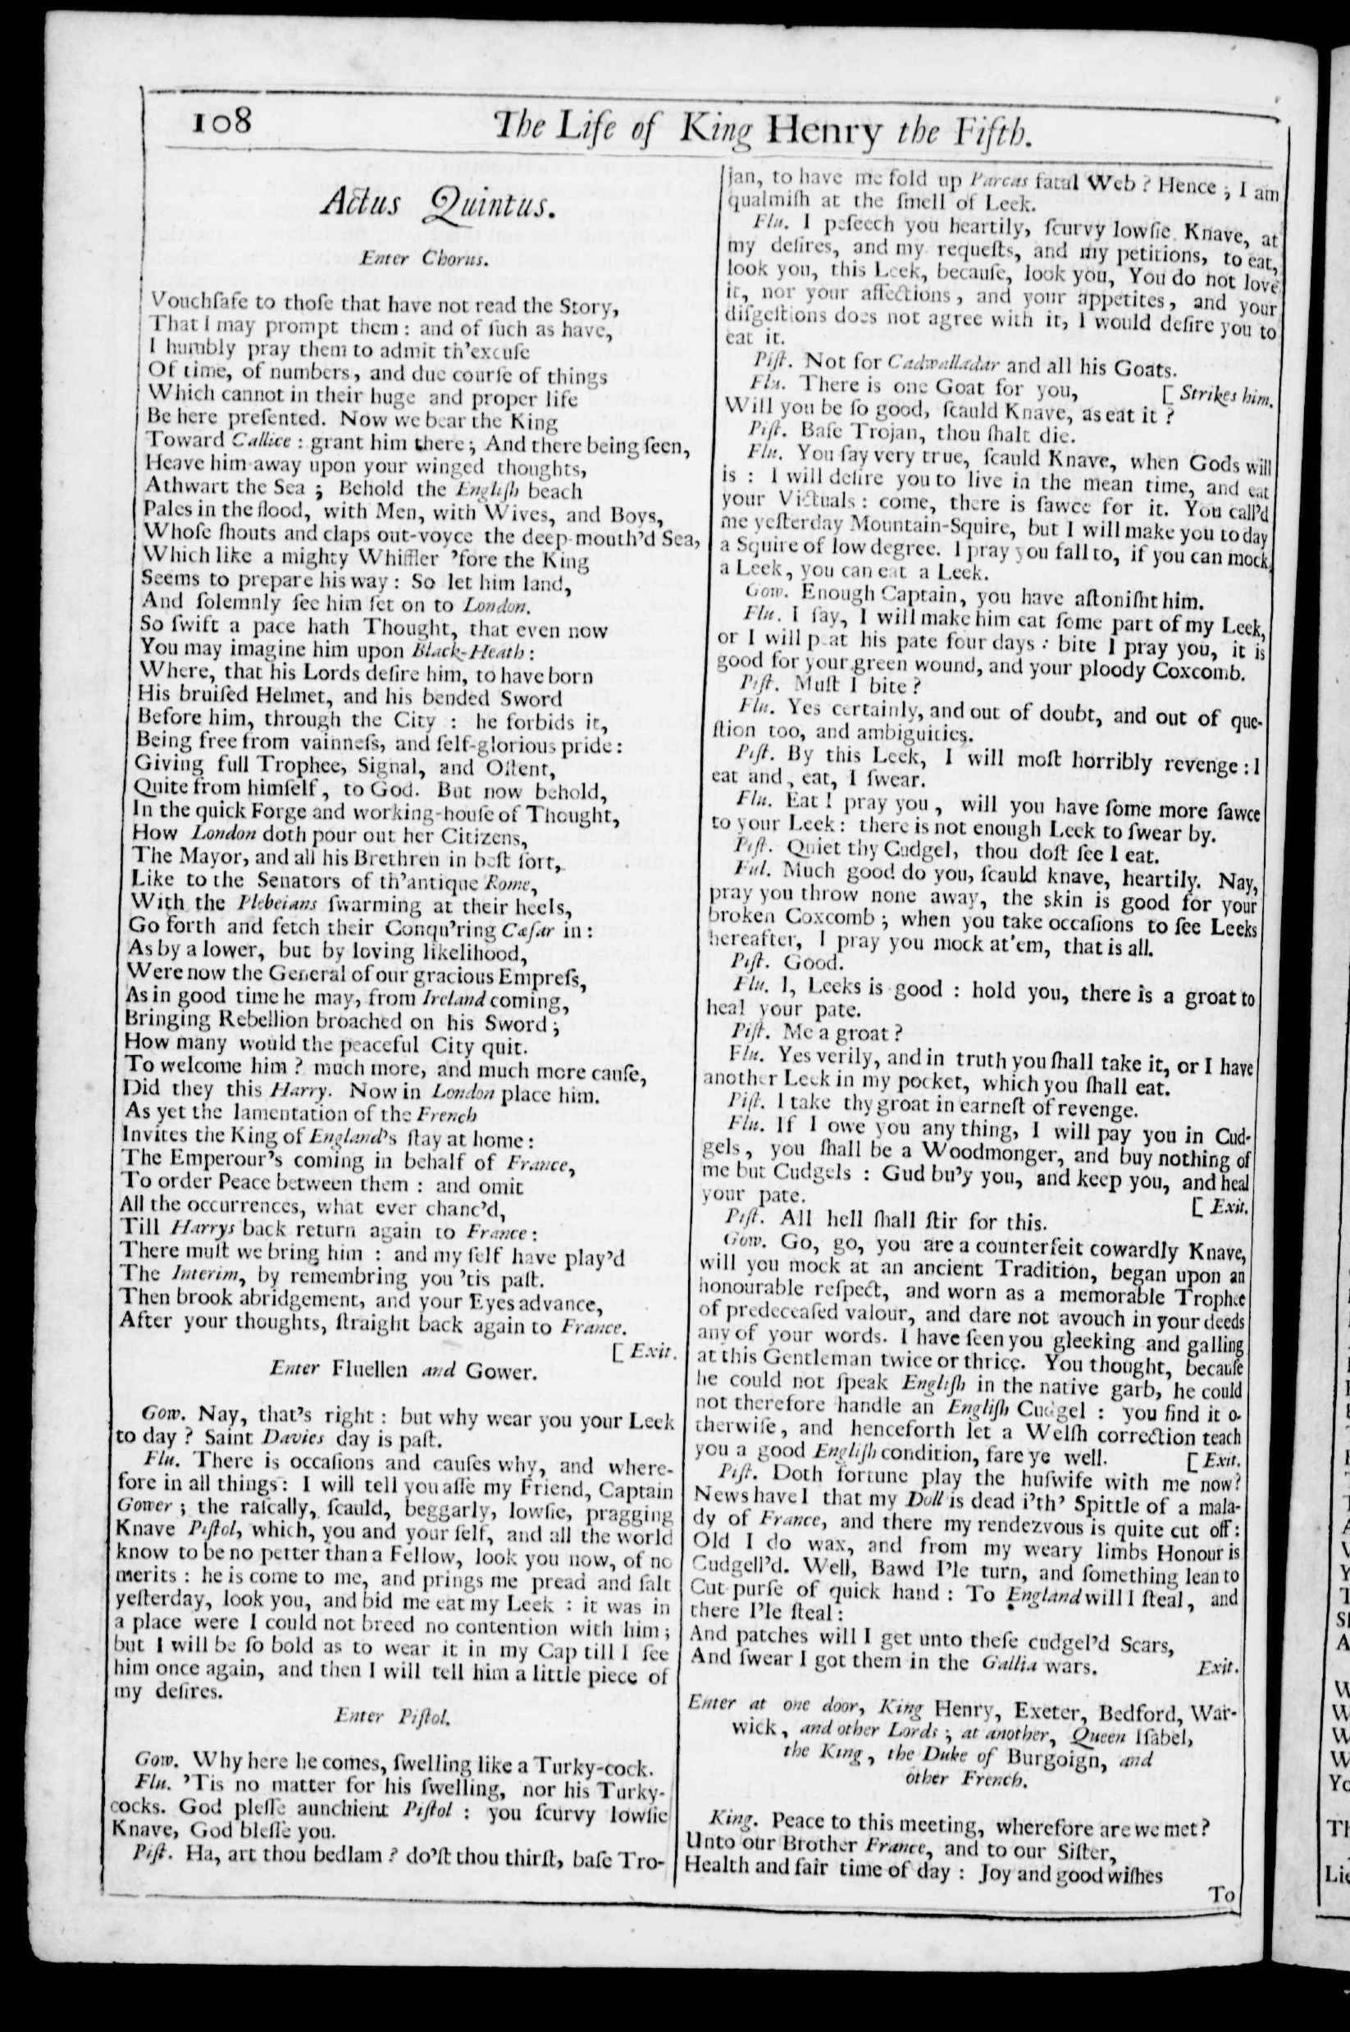 108
The Life of King Henry the Fifth.
Actus Quintus.
Enter Chorus.
Vouchſafe to thoſe that have not read the Story,
That I may prompt them : and of ſuch as have,
I humbly pray them to admit th'excuſe
Of time, of numbers, and due courſe of things
Which cannot in their huge and proper life
Be here preſented. Now we bear the King
Toward Callice : grant him there ; And there being ſeen,
Heave him away upon your winged thoughts,
Athwart the Sea ; Behold the Engliſh beach
Pales in the flood, with Men, with Wives, and Boys,
Whoſe ſhouts and claps out-voyce the deep-mouth'd Sea,
Which like a mighty Whiffler 'fore the King
Seems to prepare his way : So let him land,
And ſolemnly ſee him ſet on to London.
So ſwift a pace hath Thought, that even now
You may imagine him upon Black-Heath :
Where, that his Lords deſire him, to have born
His bruiſed Helmet, and his bended Sword
Before him, through the City : he forbids it,
Being free from vainneſs, and ſelf-glorious pride :
Giving full Trophee, Signal, and Oſtent,
Quite from himſelf, to God. But now behold,
In the quick Forge and working-houſe of Thought,
How London doth pour out her Citizens,
The Mayor, and all his Brethren in beſt ſort,
Like to the Senators of th'antique Rome,
With the Plebeians ſwarming at their heels,
Go forth and fetch their Conqu'ring Cæſar in :
As by a lower, but by loving likelihood,
Were now the General of our gracious Empreſs,
As in good time he may, from Ireland coming,
Bringing Rebellion broached on his Sword ;
How many would the peaceful City quit.
To welcome him ? much more, and much more cauſe,
Did they this Harry. Now in London place him.
As yet the lamentation of the French
Invites the King of England's ſtay at home :
The Emperour's coming in behalf of France,
To order Peace between them : and omit
All the occurrences, what ever chanc'd,
Till Harrys back return again to France :
There muſt we bring him : and my ſelf have play'd
The Interim, by remembring you 'tis paſt.
Then brook abridgement, and your Eyes advance,
After your thoughts, ſtraight back again to France.
[ Exit.
Enter Fluellen and Gower.
Gow. Nay, that's right : but why wear you your Leek
to day ? Saint Davies day is paſt.
Flu. There is occaſions and cauſes why, and where-
fore in all things : I will tell you aſſe my Friend, Captain
Gower ; the raſcally, ſcauld, beggarly, lowſie, pragging
Knave Piſtol, which, you and your ſelf, and all the world
know to be no petter than a Fellow, look you now, of no
merits : he is come to me, and prings me pread and ſalt
yeſterday, look you, and bid me eat my Leek : it was in
a place were I could not breed no contention with him ;
but I will be ſo bold as to wear it in my Cap till I ſee
him once again, and then I will tell him a little piece of
my deſires.
Enter Piſtol.
Gow. Why here he comes, ſwelling like a Turky-cock.
Flu. 'Tis no matter for his ſwelling, nor his Turky-
cocks. God pleſſe aunchient Piſtol : you ſcurvy lowſie
Knave, God bleſſe you.
Piſt. Ha, art thou bedlam ? do'ſt thou thirſt, baſe Tro-
jan, to have me fold up Parcas fatal Web ? Hence ; I am
qualmiſh at the ſmell of Leek.
Flu. I peſeech you heartily, ſcurvy lowſie Knave, at
my deſires, and my requeſts, and my petitions, to eat,
look you, this Leek, becauſe, look you, You do not love
it, nor your affections, and your appetites, and your
diſgeſtions does not agree with it, I would deſire you to
eat it.
Piſt. Not for Cadwalladar and all his Goats.
Flu. There is one Goat for you, [ Strikes him.
Will you be ſo good, ſcauld Knave, as eat it ?
Piſt. Baſe Trojan, thou ſhalt die.
Flu. You ſay very true, ſcauld Knave, when Gods will
is : I will deſire you to live in the mean time, and eat
your Victuals : come, there is ſawce for it. You call'd
me yeſterday Mountain-Squire, but I will make you to day
a Squire of low degree. I pray you fall to, if you can mock
a Leek, you can eat a Leek.
Gow. Enough Captain, you have aſtoniſht him.
Flu. I ſay, I will make him eat ſome part of my Leek,
or I will peat his pate four days : bite I pray you, it is
good for your green wound, and your ploody Coxcomb.
Piſt. Muſt I bite ?
Flu. Yes certainly, and out of doubt, and out of que-
ſtion too, and ambiguities.
Piſt. By this Leek, I will moſt horribly revenge : I
eat and, eat, I ſwear.
Flu. Eat I pray you, will you have ſome more ſawce
to your Leek : there is not enough Leek to ſwear by.
Piſt. Quiet thy Cudgel, thou doſt ſee I eat.
Ful. Much good do you, ſcauld knave, heartily. Nay,
pray you throw none away, the skin is good for your
broken Coxcomb ; when you take occaſions to ſee Leeks
hereafter, I pray you mock at'em, that is all.
Piſt. Good.
Flu. I, Leeks is good : hold you, there is a groat to
heal your pate.
Piſt. Me a groat ?
Flu. Yes verily, and in truth you ſhall take it, or I have
another Leek in my pocket, which you ſhall eat.
Piſt. I take thy groat in earneſt of revenge.
Flu. If I owe you any thing, I will pay you in Cud-
gels, you ſhall be a Woodmonger, and buy nothing of
me but Cudgels : Gud bu'y you, and keep you, and heal
your pate. [ Exit.
Piſt. All hell ſhall ſtir for this.
Gow. Go, go, you are a counterfeit cowardly Knave,
will you mock at an ancient Tradition, began upon an
honourable reſpect, and worn as a memorable Trophee
of predeceaſed valour, and dare not avouch in your deeds
any of your words. I have ſeen you gleeking and galling
at this Gentleman twice or thrice. You thought, becauſe
he could not ſpeak Engliſh in the native garb, he could
not therefore handle an Engliſh Cudgel : you find it o-
therwiſe, and henceforth let a Welſh correction teach
you a good Engliſh condition, fare ye well. [ Exit.
Piſt. Doth fortune play the huſwife with me now?
News have I that my Doll is dead i'th' Spittle of a mala-
dy of France, and there my rendezvous is quite cut off :
Old I do wax, and from my weary limbs Honour is
Cudgell'd. Well, Bawd I'le turn, and ſomething lean to
Cut-purſe of quick hand : To England will I ſteal, and
there I'le ſteal :
And patches will I get unto theſe cudgel'd Scars,
And ſwear I got them in the Gallia wars. Exit.
Enter at one door, King Henry, Exeter, Bedford, War-
wick, and other Lords ; at another, Queen Iſabel,
the King, the Duke of Burgoign, and
other French.
King. Peace to this meeting, wherefore are we met ?
Unto our Brother France, and to our Siſter,
Health and fair time of day : Joy and good wiſhes
To